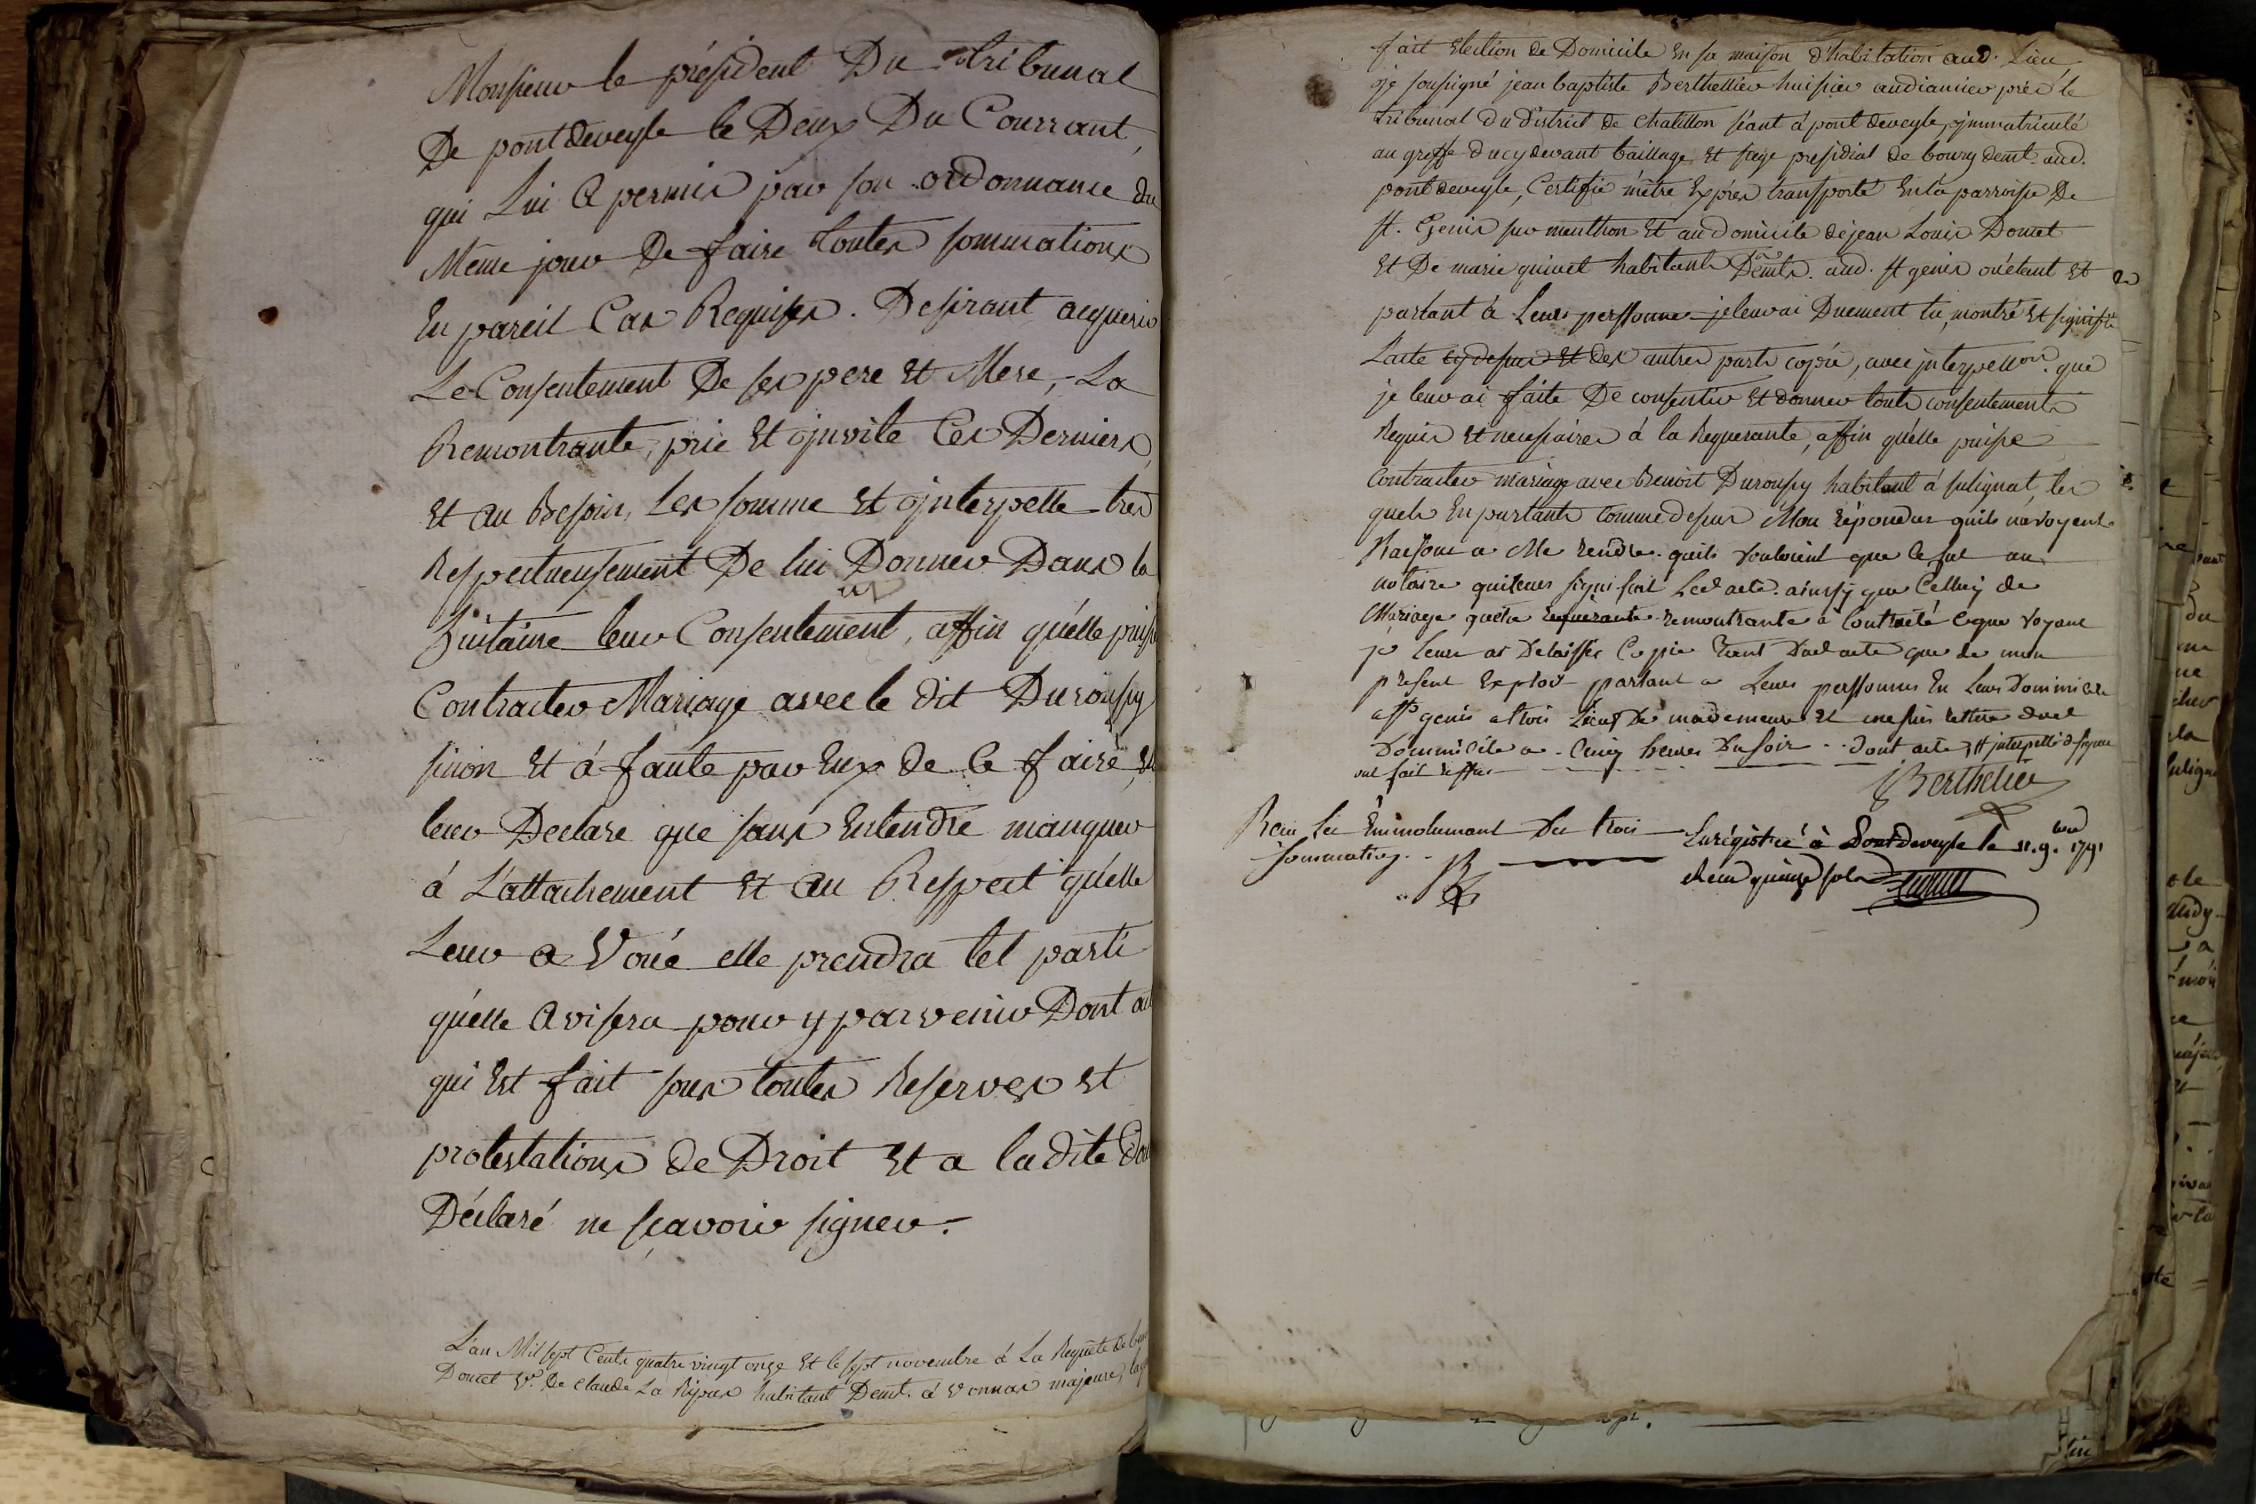 Monsieur le président Du tribunal
De pontdeveyle le Deux Du Courrant,
qui Lui a permis par son ordonnance du
Même jour De faire toutes sommations
En pareil Cas Requises. Desirant acquerir
Le Consentement De ses pere Et Mere, La
Remontrante, prie Et jnvite Ces Derniers,
Et au Besoin, Les somme Et jnterpelle très
Respectueusement De lui Donner Dans la
huitaine leur Consentement, affin qu'elle puisse
Contracter Mariage avec le dit Duroussy
sinon Et à faute par Eux de Ce faire,
leur Declare que sans Entendre manquer
à L'attachement Et au Respect qu'elle
Leur a Voué elle prendra tel parti
qu'elle avisera pour y parvenir Dont
qui Est fait sous toutes Reserves Et
protestations de Droit Et a la dite
Déclaré ne sçavoir signer.
L'an Mil sept Cents quatre vingt onze Et le sept novembre à La Requête de
Doucet Vᵉ De Claude La Ripas habitant Demt. à Vonnas majeure,
fait Election de Domicile En sa maison d'habitation aud. Lieu
je soussigné jean baptiste Berthellier huissier audiancier près le
tribunal du District de Chatillon séant à pont deveyle, jmmatriculé
au greffe du cy devant Baillage Et siege presidial de bourg demt. aud.
pontdeveyle, Certifie m'être Exprès transporté En la parroisse De
st. Genis sur menthon Et au domicile de jean Louis Doucet
Et De marie quivet habitants Demts. aud. st genis où étant Et
parlant à Leurs perssonnes je leur ai Duement lu, montré Et signifié
L'acte cy dessus Et des autres parts copié, avec jnterpellon. que
je leur ai faite De consentir Et donner touts consentements
Requis Et necessaires à la Requerante, affin qu'elle puisse
Contracter mariage avec Benoit Duroussy habitant à sulignat, les
quels En parlants Comme dessus Mon répondus quils navoyent
Raisons a Me rendre. quils vouloient que ce fut un
notaire qui leurs signifiat Led acte. ainssy que Celluy de
Mariage que la requerante remontrante a Contracté Ceque voyant
je Leurs ai Delaissés Copie tant Dud acte que de mon
present Exploit parlant a Leurs perssonnes En Leurs Dommicile
a st genis a trois Lieues De ma demeure Et me suis retiré dud
Dommicile a Cinq heures Du soir dont acte Et jnterpellé de signer
ont fait reffus
Berthelier
Reçu Les Emmolument Des trois
sommations.
Enrégistré à Pontdeveyle le 11. 9.bre 1791
Reçu quinze sols